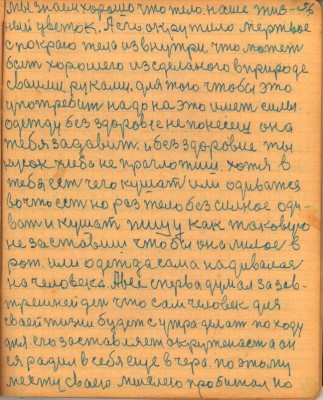 мы знаем хорошо что тело наше жив-
ной цветок. А если окружило мертвое
с покраю тела из внутри, что может
быт хорошего из сделаного в природе
своими руками, для того чтобы это
употребит надо на это имет силы.
одежду без здоровее не понесеш она
тебя задавит. и без здоровие ты
кусок хлеба не проглотиш. хотя в
тебя ест чего кушат или одеватся
во что ест но раз тело безсилное оде-
ват и кушат пищу как таковую
не заставиш чтобы она милое в
рот или одежда сама надивалася
на человека. А все сперва думал за зав-
трешней ден что сам человек для
своей жизни будет с утра делат по ходу
дня. его заставляет окружение а он
ся родил в себя еще вчера. поэтому
место своего мислею пробитал но